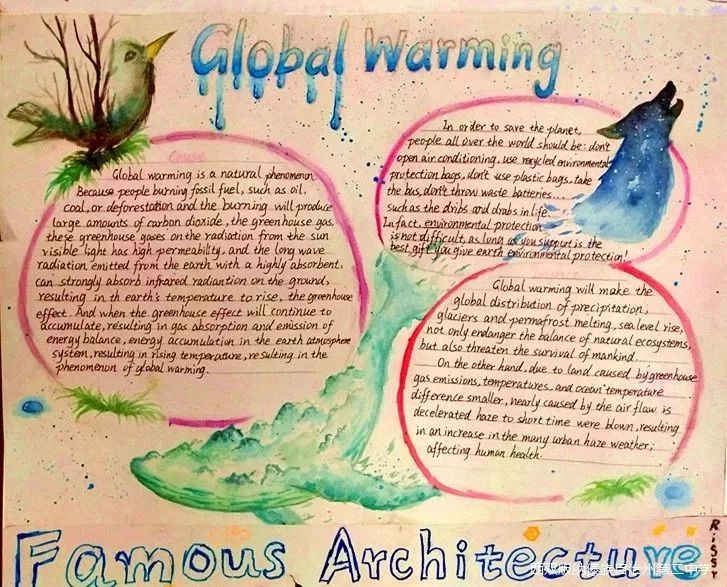 Global Warming
Cause
Global warming is a natural phenomenon.
Because people burning fossil fuel, such as oil,
coal, or deforestation and the burning will produce
large amounts of carbon dioxide, the greenhouse gas,
these greenhouse gases on the radiation from the sun
visible light has high permeability, and the long wave
radiation emitted from the earth with a highly absorbent,
can strongly absorb infrared radiantion on the ground,
resulting in th earth's temperature to rise, the greenhouse
effect. And when the greenhouse effect will continue to
accumulate, resulting in gas absorption and emission of
energy balance, energy accumulation in the earth atmosphere
system, resulting in rising temperature, resulting in the
phenomenon of global warming.
In order to save the planet,
people all over the world should be: don't
open air conditioning, use recycled environmental
protection bags, don't use plastic bags, take
the bus, don't throw waste batteries
such as the dribs and drabs in life.
In fact, environmental protection
is not difficult, as long as you support is the
best gift you give earth environmental protection!
Global warming will make the
global distribution of precipitation,
glaciers and permafrost melting, sea level rise,
not only endanger the balance of natural ecosystems,
but also threaten the survival of mankind.
On the other hand, due to land caused by greenhouse
gas emissions, temperatures, and ocean temperature
difference smaller, nearly caused by the air flaw is
decelerated haze to short time were blown, resulting
in an increase in the many urban haze weather,
affecting human health.
Famous Architecture